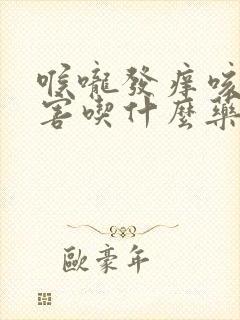 喉嚨發癢咳
害喫什麼藥
歐豪年